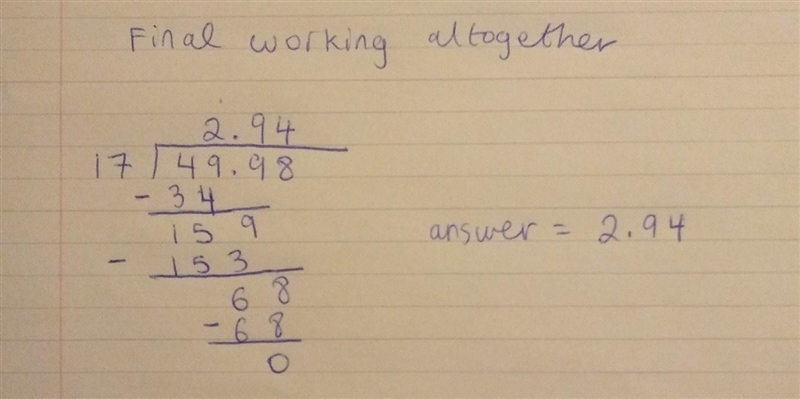 Final working altogether
2.94
17 49.98
- 34
159
- 153
68
- 68
0
answer = 2.94